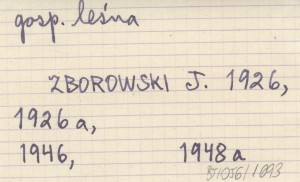 gosp. leśna
ZBOROWSKI J. 1926,
1926 a,
1946, 1948 a